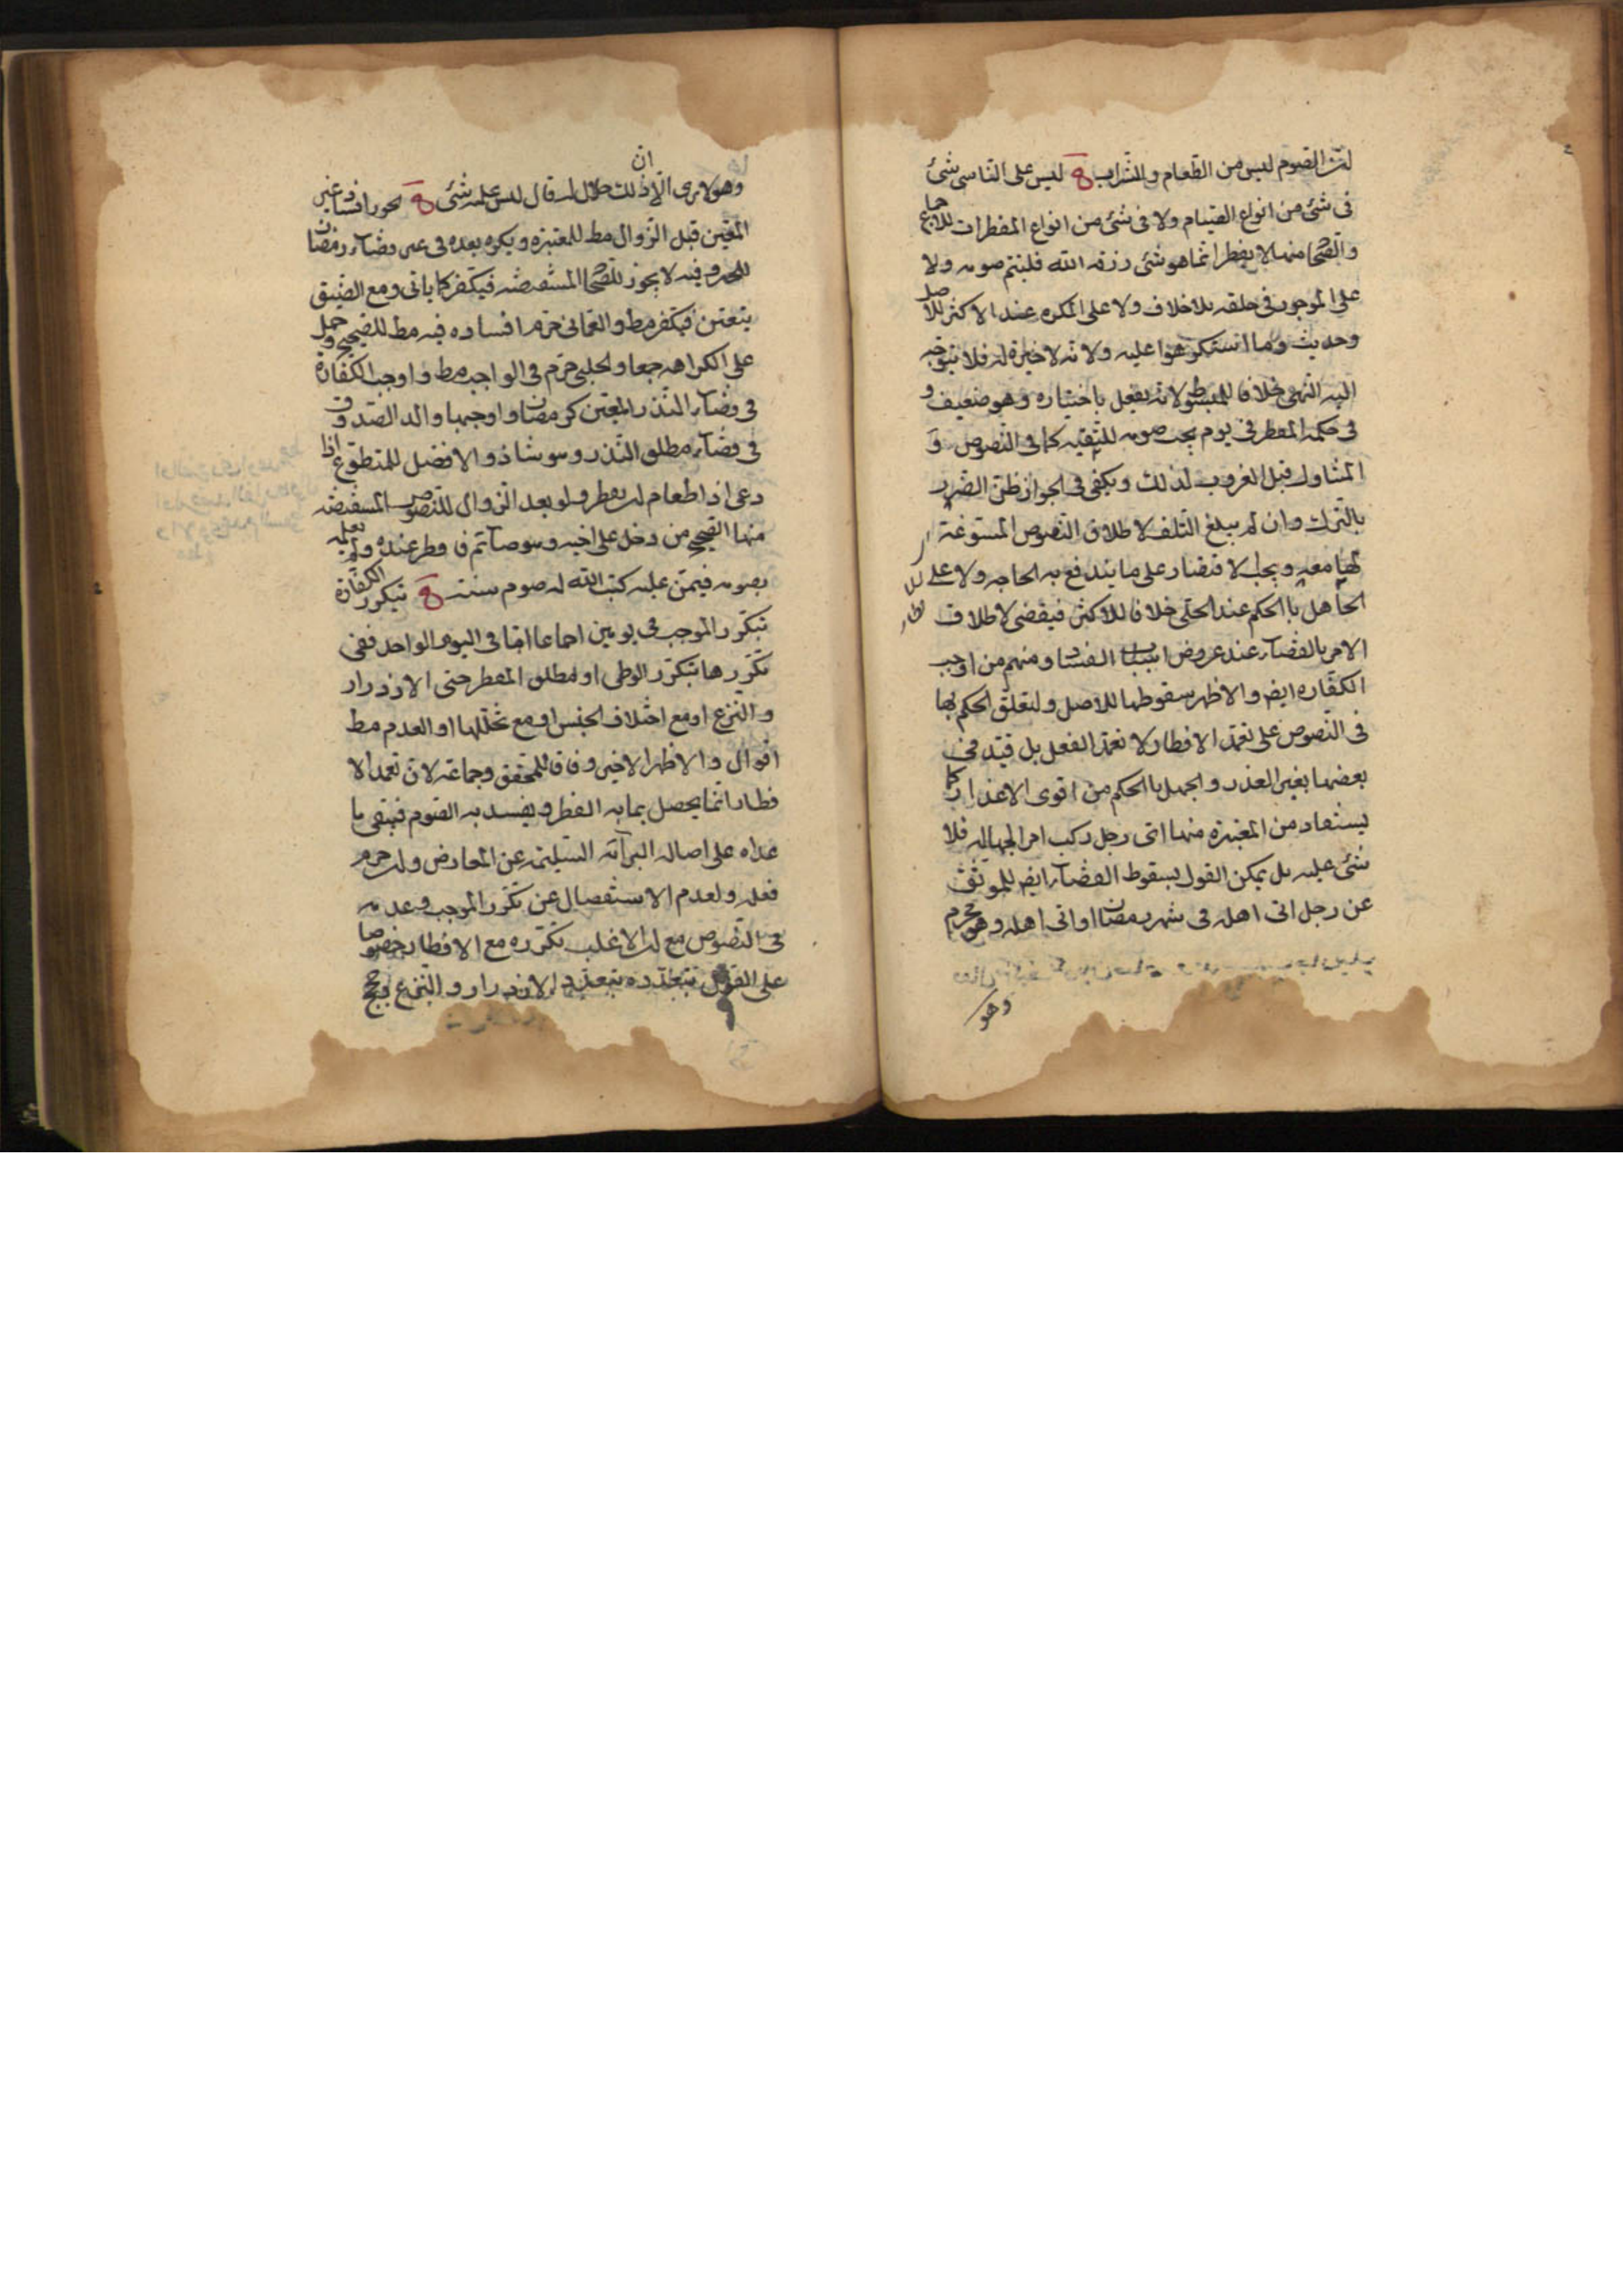 لان الصوم ليس من الطعام والشراب ليس على الناسى شئ
فى شئ من انواع الصيام ولا فى شئ من انواع المفطرات للاجماع
والصحاح منها لا يفطر انما هو شئ رزقه الله فليتم صومه ولا
على الموجور فى حلقه بلا خلاف ولا على المكره عند الاكثر للاصل
وحديث وما استكرهوا عليه ولانه لا خيرة له فلا يتوجه
اليه النهى خلافا للمبسوط لانه يفعل باختياره وهو ضعيف و
فى حكمه المفطر فى يوم يجب صومه للتقيه كما فى النصوص و
المتناول قبل الغروب لذلك ويكفى فى الجواز ظن الضرر
بالترك وان لم يبلغ التلف لاطلاق النصوص المسوغة
لها معه ويجب الاقتصار على ما يندفع به الحاجه ولا على
الجاهل باالحكم عند الحلى خلافا للاكثر فيقضى لاطلاق
الامر بالقضاء عند عروض اسباب الفساد ومنهم من اوجب
الكفاره ايض والاظهر سقوطها للاصل ولتعلق الحكم بها
فى النصوص على تعمد الافطار لا تعمد الفعل بل قيد فى
بعضها بغير العذر والجهل باالحكم من اقوى الاعذار كما
يستفاد من المعتبرة منها اتى رجل ركب امرا لجهاله فلا
شئ عليه بل يمكن القول بسقوط القضاء ايض للموثق
عن رجل اتى اهله فى شهر رمضان او اتى اهله وهو محرم
وهو
وهو لا يرى الا ان ذلك حلال له قال ليس عليه شئ يجوز افساد غير
المعين قبل الزوال مط للمعتبرة ويكره بعده فى غير قضاء رمضان
وفيه لا يجوز للصحاح المستفيضه فيكفر كما ياتى ومع الضيق
يتعين فيكفر مط والعمانى حرم افساده فيه مط للصحيح وحمل
على الكراهه جمعا والحلبى حرم فى الواجب مط و اوجب الكفارة
فى قضاء النذر المعين كرمضان و اوجبها والد الصدوق
فى قضاء مطلق النذر وهو شاذ والافضل للمتطوع اذا
دعى اذا طعام ان يفطر ولو بعد الزوال للنصوص المستفيضه
منها الصحيح من دخل على اخيه وهو صائم فافطر عنده ولم يعلمه
بصومه فيمن عليه كتب الله له صوم سنة تتكرر الكفارة
بتكرر الموجب فى يومين اجماعا اما فى اليوم الواحد ففى
تكررها بتكرر الوطى او مطلق المفطر حتى الازدرار
والنزع او مع اختلاف الجنس او مع تخللها او العدم مط
اقوال والاظهر الاخير وفاقا للمحقق وجماعة لان تعمد الا
فطار انما يحصل بما به الفطر ويفسد به الصوم فيبقى ما
عداه على اصالة البرآئة السليمة عن المعارض وان حرم
فعله ولعدم الاستفصال عن تكرر الموجب وعدمه
فى النصوص مع ان الاغلب تكرره مع الافطار خصوصا
على القول بتعدده بتعدد الازدرار والنزع